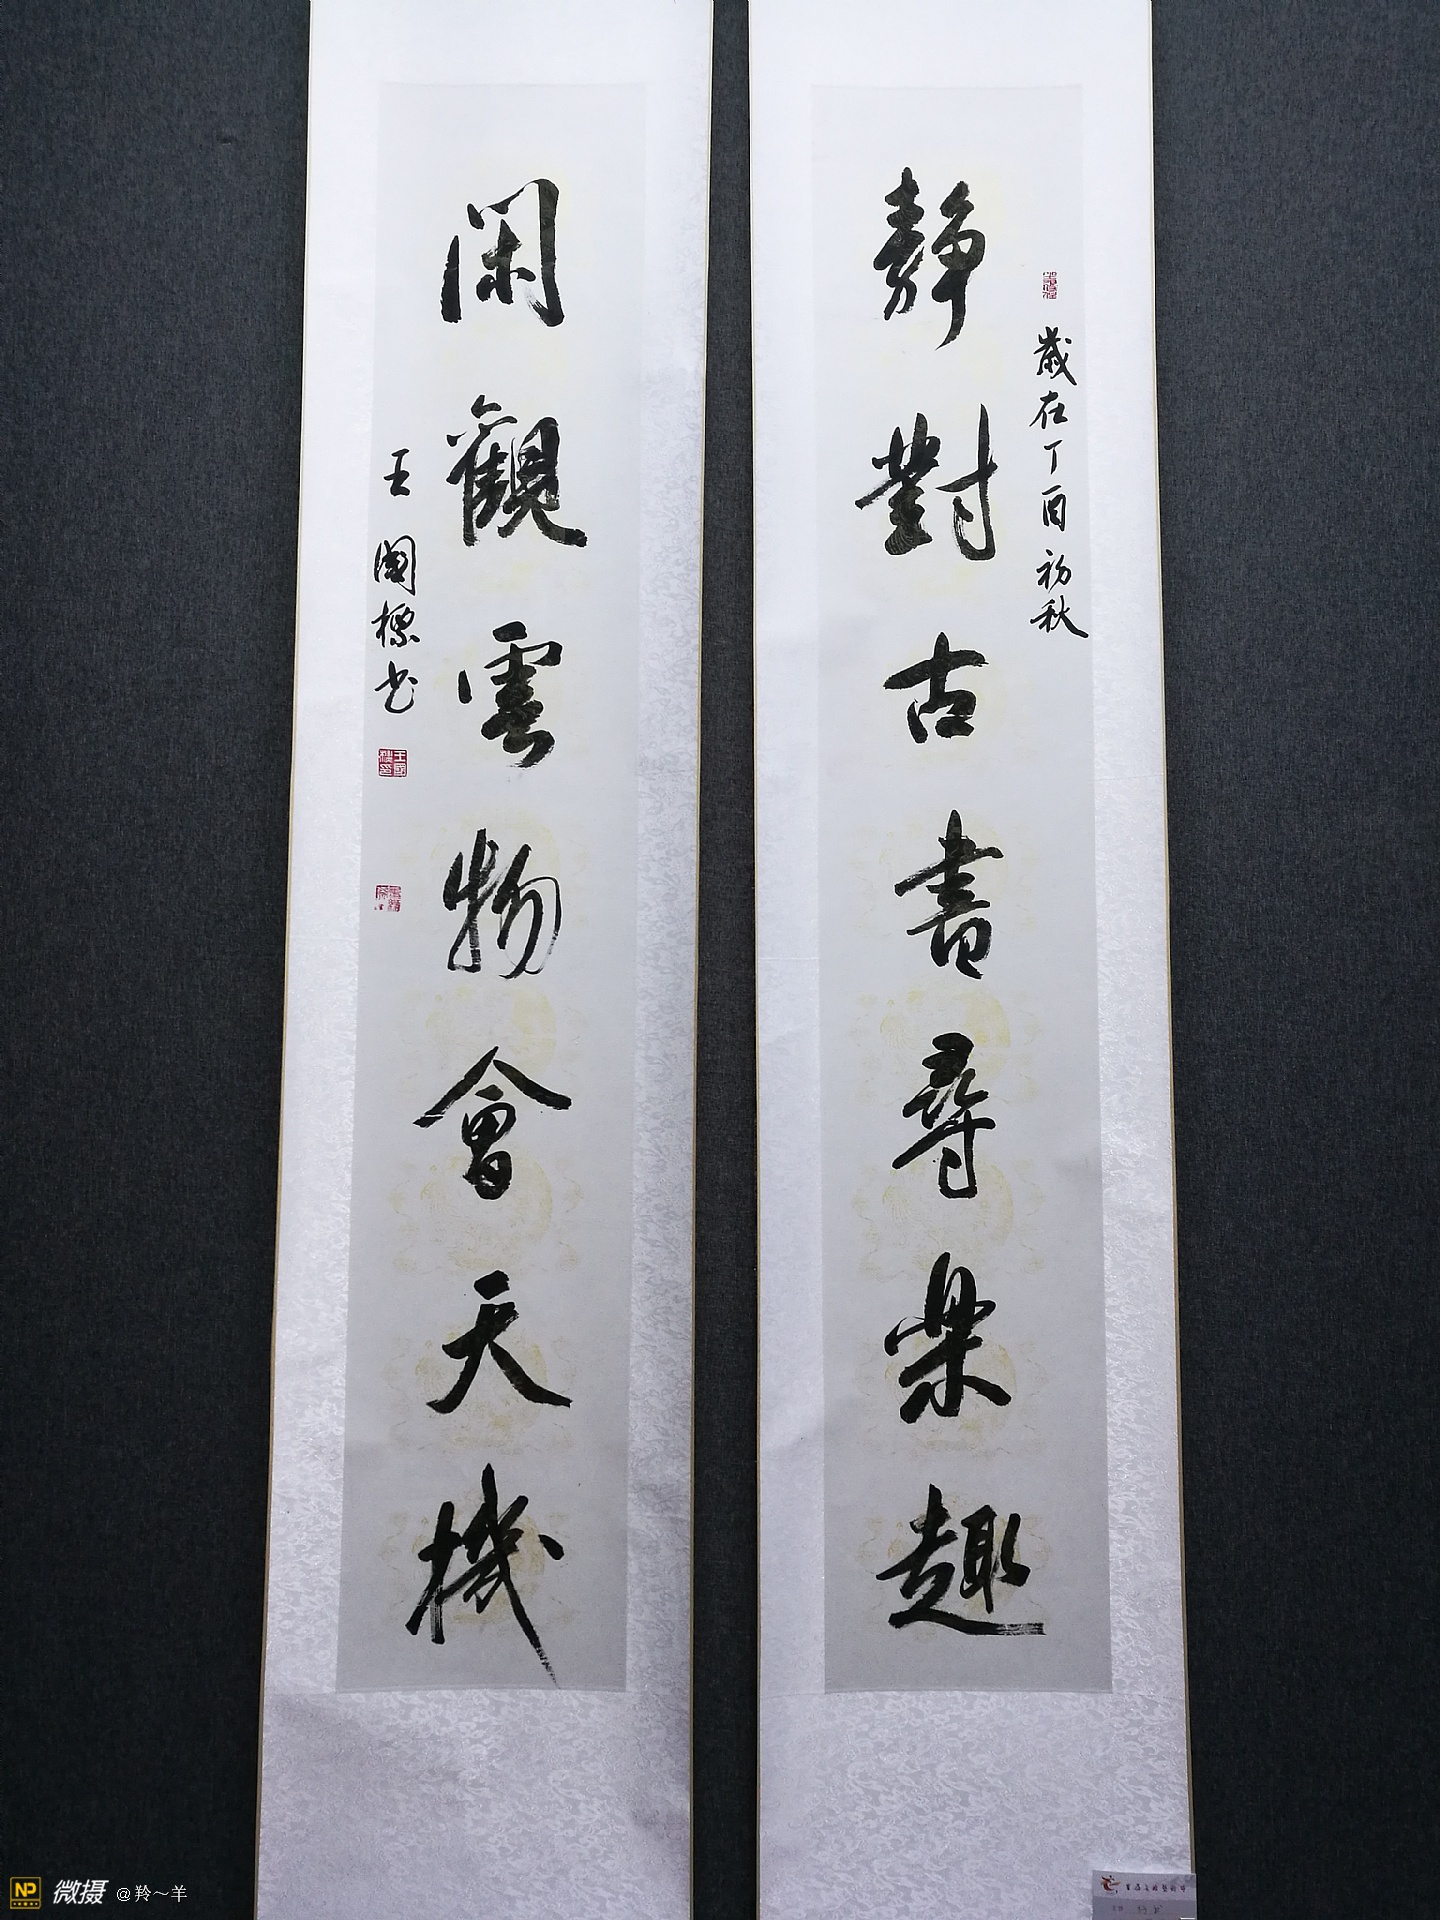 歲在丁酉初秋
靜對古書尋樂趣
閑觀雲物會天機
王國標书
王國標印
NP 微摄 @羚～羊